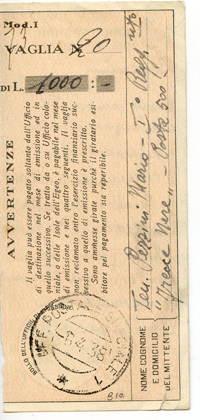 Mod. 1
VAGLIA N. 20
DI L. 1000:-
AVVERTENZE
Il vaglia può essere pagato soltanto dall'Ufficio
di destinazione nel mese di emissione ed in
quello successivo. Se tratto da o su Uffici
delle Isole dell'Egeo, è pagabile nel mese
di emissione e nei quattro seguenti. Il vaglia
non reclamato entro l'esercizio finanziario suc-
cessivo a quello di emissione è prescritto.
Sono ammesse girate purchè il giratario esi-
bitore pel pagamento sia reperibile.
BOLLO DELL'UFFICIO DI
NOME COGNOME
E DOMICILIO
DEL MITTENTE
Ten. Mario
Posta 500
UFF. POSTA
38
R 10.